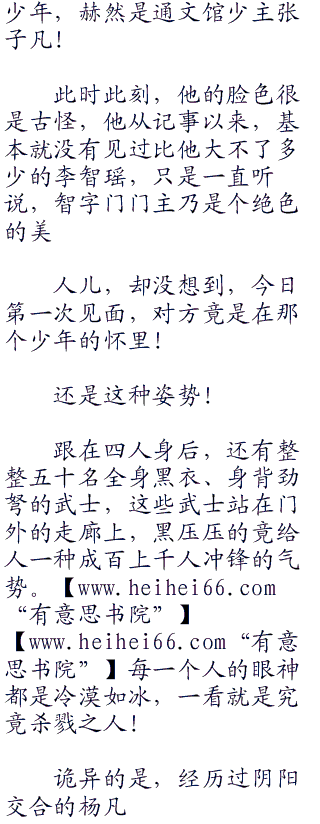 少年，赫然是通文馆少主张
子凡！
　　此时此刻，他的脸色很
是古怪，他从记事以来，基
本就没有见过比他大不了多
少的李智瑶，只是一直听
说，智字门门主乃是个绝色
的美
　　人儿，却没想到，今日
第一次见面，对方竟是在那
个少年的怀里！
　　还是这种姿势！
　　跟在四人身后，还有整
整五十名全身黑衣、身背劲
弩的武士，这些武士站在门
外的走廊上，黑压压的竟给
人一种成百上千人冲锋的气
势。【www.heihei66.com
“有意思书院”】
【www.heihei66.com“有意
思书院”】每一个人的眼神
都是冷漠如冰，一看就是究
竟杀戮之人！
　　诡异的是，经历过阴阳
交合的杨凡